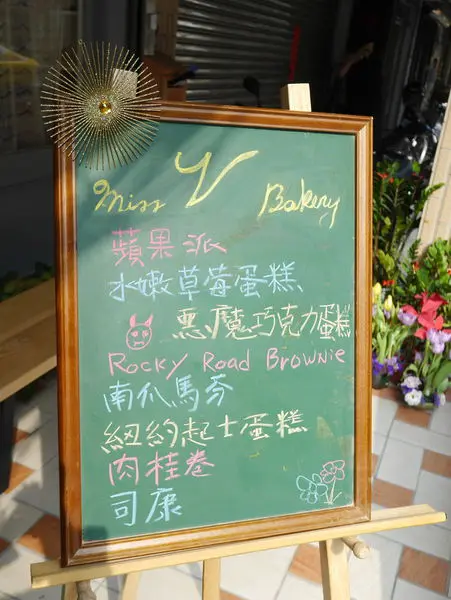 Miss V Bakery
蘋果派
水嫩草莓蛋糕、
惡魔巧克力蛋糕
Rocky Road Brownie
南瓜馬芬
紐約起士蛋糕
肉桂卷
司康